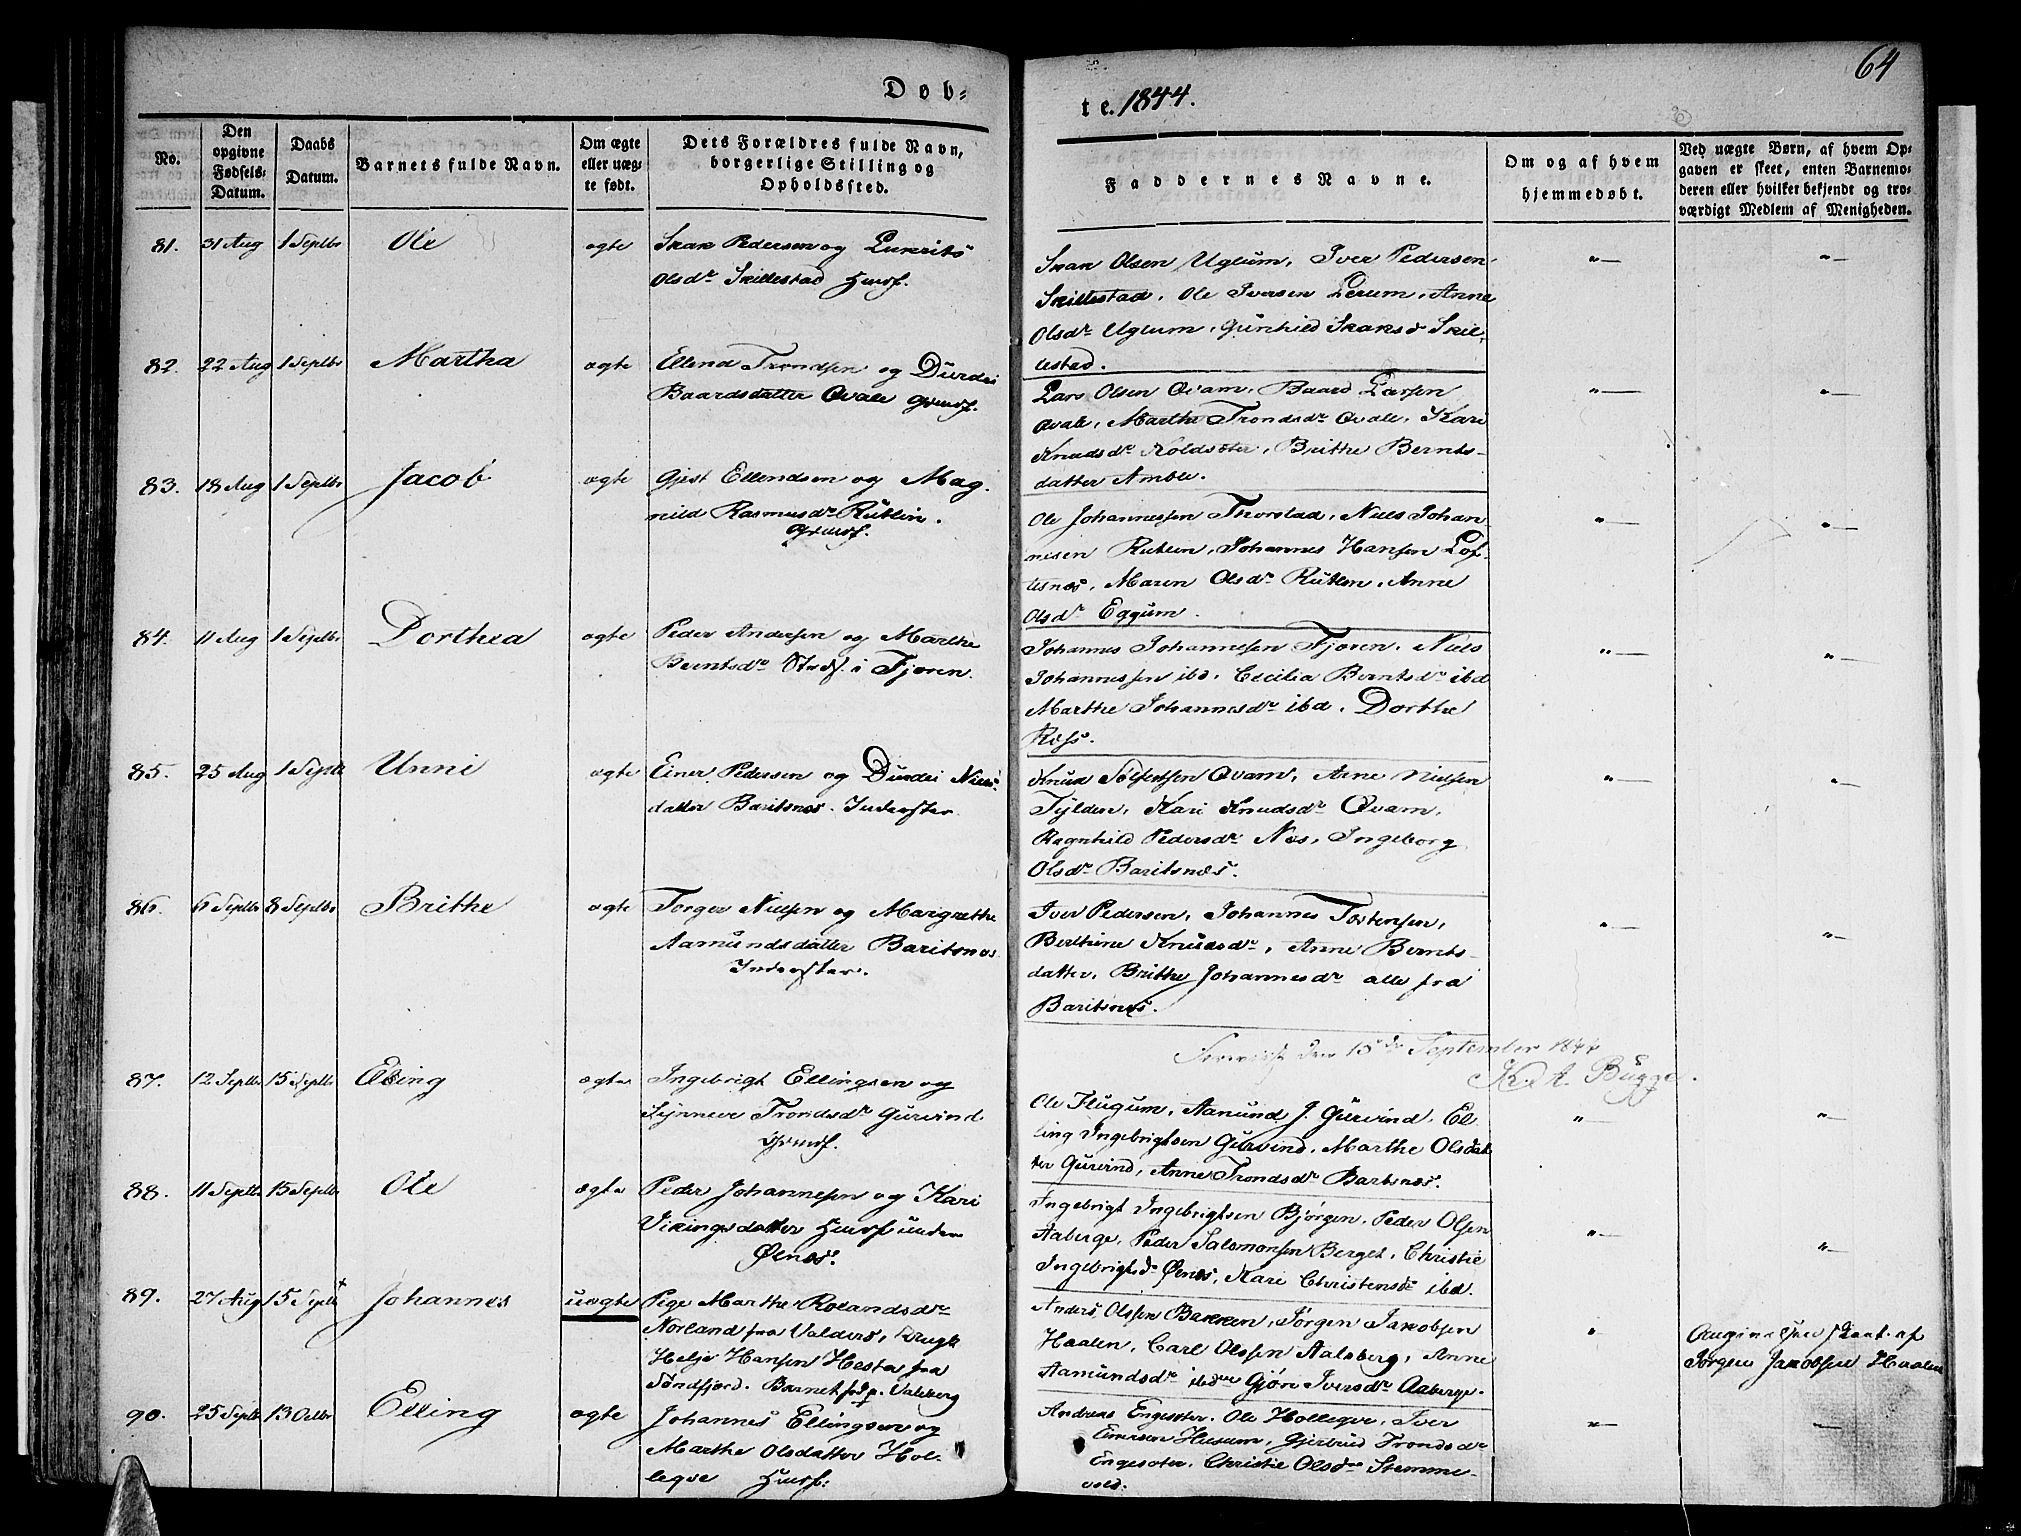 64
Døb-
te. 1844.
No.
Den opgivne Fødsels-Datum.
Daabs Datum.
Barnets fulde Navn.
Om ægte eller uægte født.
Dets Forældres fulde Navn, borgerlige Stilling og Opholdssted.
Faddernes Navne.
Om og af hvem hjemmedøbt.
Ved uægte Børn, af hvem Opgaven er skeet, enten Barnemoderen eller hvilket bekjendt og troværdigt Medlem af Menigheden.
81. 31 Aug 1 Septbr Ole ægte Skak Pedersen og
Olsdr Skillestad Huusf.
Skak Olsen Uglum, Iver Pedersen
Skillestad, Ole Iversen Lerum, Anne
Olsdr Uglum, Gunhild Skaksd Skil-
lestad.
82. 22 Aug 1 Septbr Martha ægte Ellend Trondsen og Durdei
Baardsdatter Qvale Grmdf.
Lars Olsen Qvam, Baard Larsen
Qvale, Marthe Trondsdr Qvale, Kari
Knudsdr Koldsæter, Brithe Bernts-
datter Amble.
83. 18 Aug 1 Septbr Jacob ægte Gjest Ellendsen og Mag-
nild Rasmusdr Rutlin.
Grmdf.
Ole Johannessen Thorstad, Niels Johan-
nesen Rutlin, Johannes Hansen Lof-
tesnes, Maren Olsdr Rutlin, Anne
Olsdr Eggum.
84. 11 Aug 1 Septbr Dorthea ægte Peder Andersen og Marthe
Berntsdr i Fjæren.
Johannes Johannesen Fjæren, Niels
Johannessen ibd, Cecilia Berntsdr ibd
Marthe Johannesdr ibd, Dorthe
Næss.
85. 25 Aug 1 Septb Unni ægte Einer Pedersen og Durdei Niels-
datter Baritsnæs. Inderster.
Knud Qvam, Arne Nielsen
Tylden, Kari Knudsdr Qvam,
Ragnhild Pedersdr Næs, Ingeborg
Olsdr Baritsnæs.
86. 6 Septbr 8 Septbr Brithe ægte Torger Nielsen og Margrethe
Aamundsdatter Baritsnæs
Inderster.
Iver Pedersen, Johannes Torstensen,
Berthine Knudsdr, Anne Bernts-
datter, Brithe Johannesdr alle fra
Baritsnæs.
den 15de September 1844
K. A. Bugge.
87. 12 Septbr 15 Septbr Elling ægte Ingebrigt Ellingsen og
Synneve Trondsdr Gurvind
Grmdf.
Ole Flugum, Aamund J. Gurvind, El-
ling Ingebrigtsen Gurvind, Marthe Olsdat-
ter Gurvind, Anne Trondsdr Bartsnæs.
88. 11 Septbr 15 Septbr Ole ægte Peder Johannesen og Kari
Vikingsdatter Huusf under
Øenæs.
Ingebrigt Ingebrigtsen Bjørgen, Peder Olsen
Aaberge, Peder Salomonsen Berget, Christie
Ingebrigtsdr Øenæs, Kari Christensdr ibd.
89. 27 Aug 15 Septb Johannes uægte Pige Marthe Rolandsdr
Norland fra Valders, Ungk
Helje Hansen Hesta fra
Søndfjord. Barnet fød p. Valeberg
Anders Olsen Bakken, Jørgen Jakobsen
Haalen, Carl Olssen Aalsberg, Anne
Aamundsdr ibd Gjøri Iversdr Aaberge.
Angivelsen skeet af
Jørgen Jakobsen Haalen
90. 25 Septb 13 Octbr Elling ægte Johannes Ellingsen og
Marthe Olsdatter Hol-
legve Huusf.
Andreas Engesæter, Ole Hollegve, Iver
Husum, Gjertrud Trondsdr
Engesæter, Christie Olsdr Stemme-
vold.